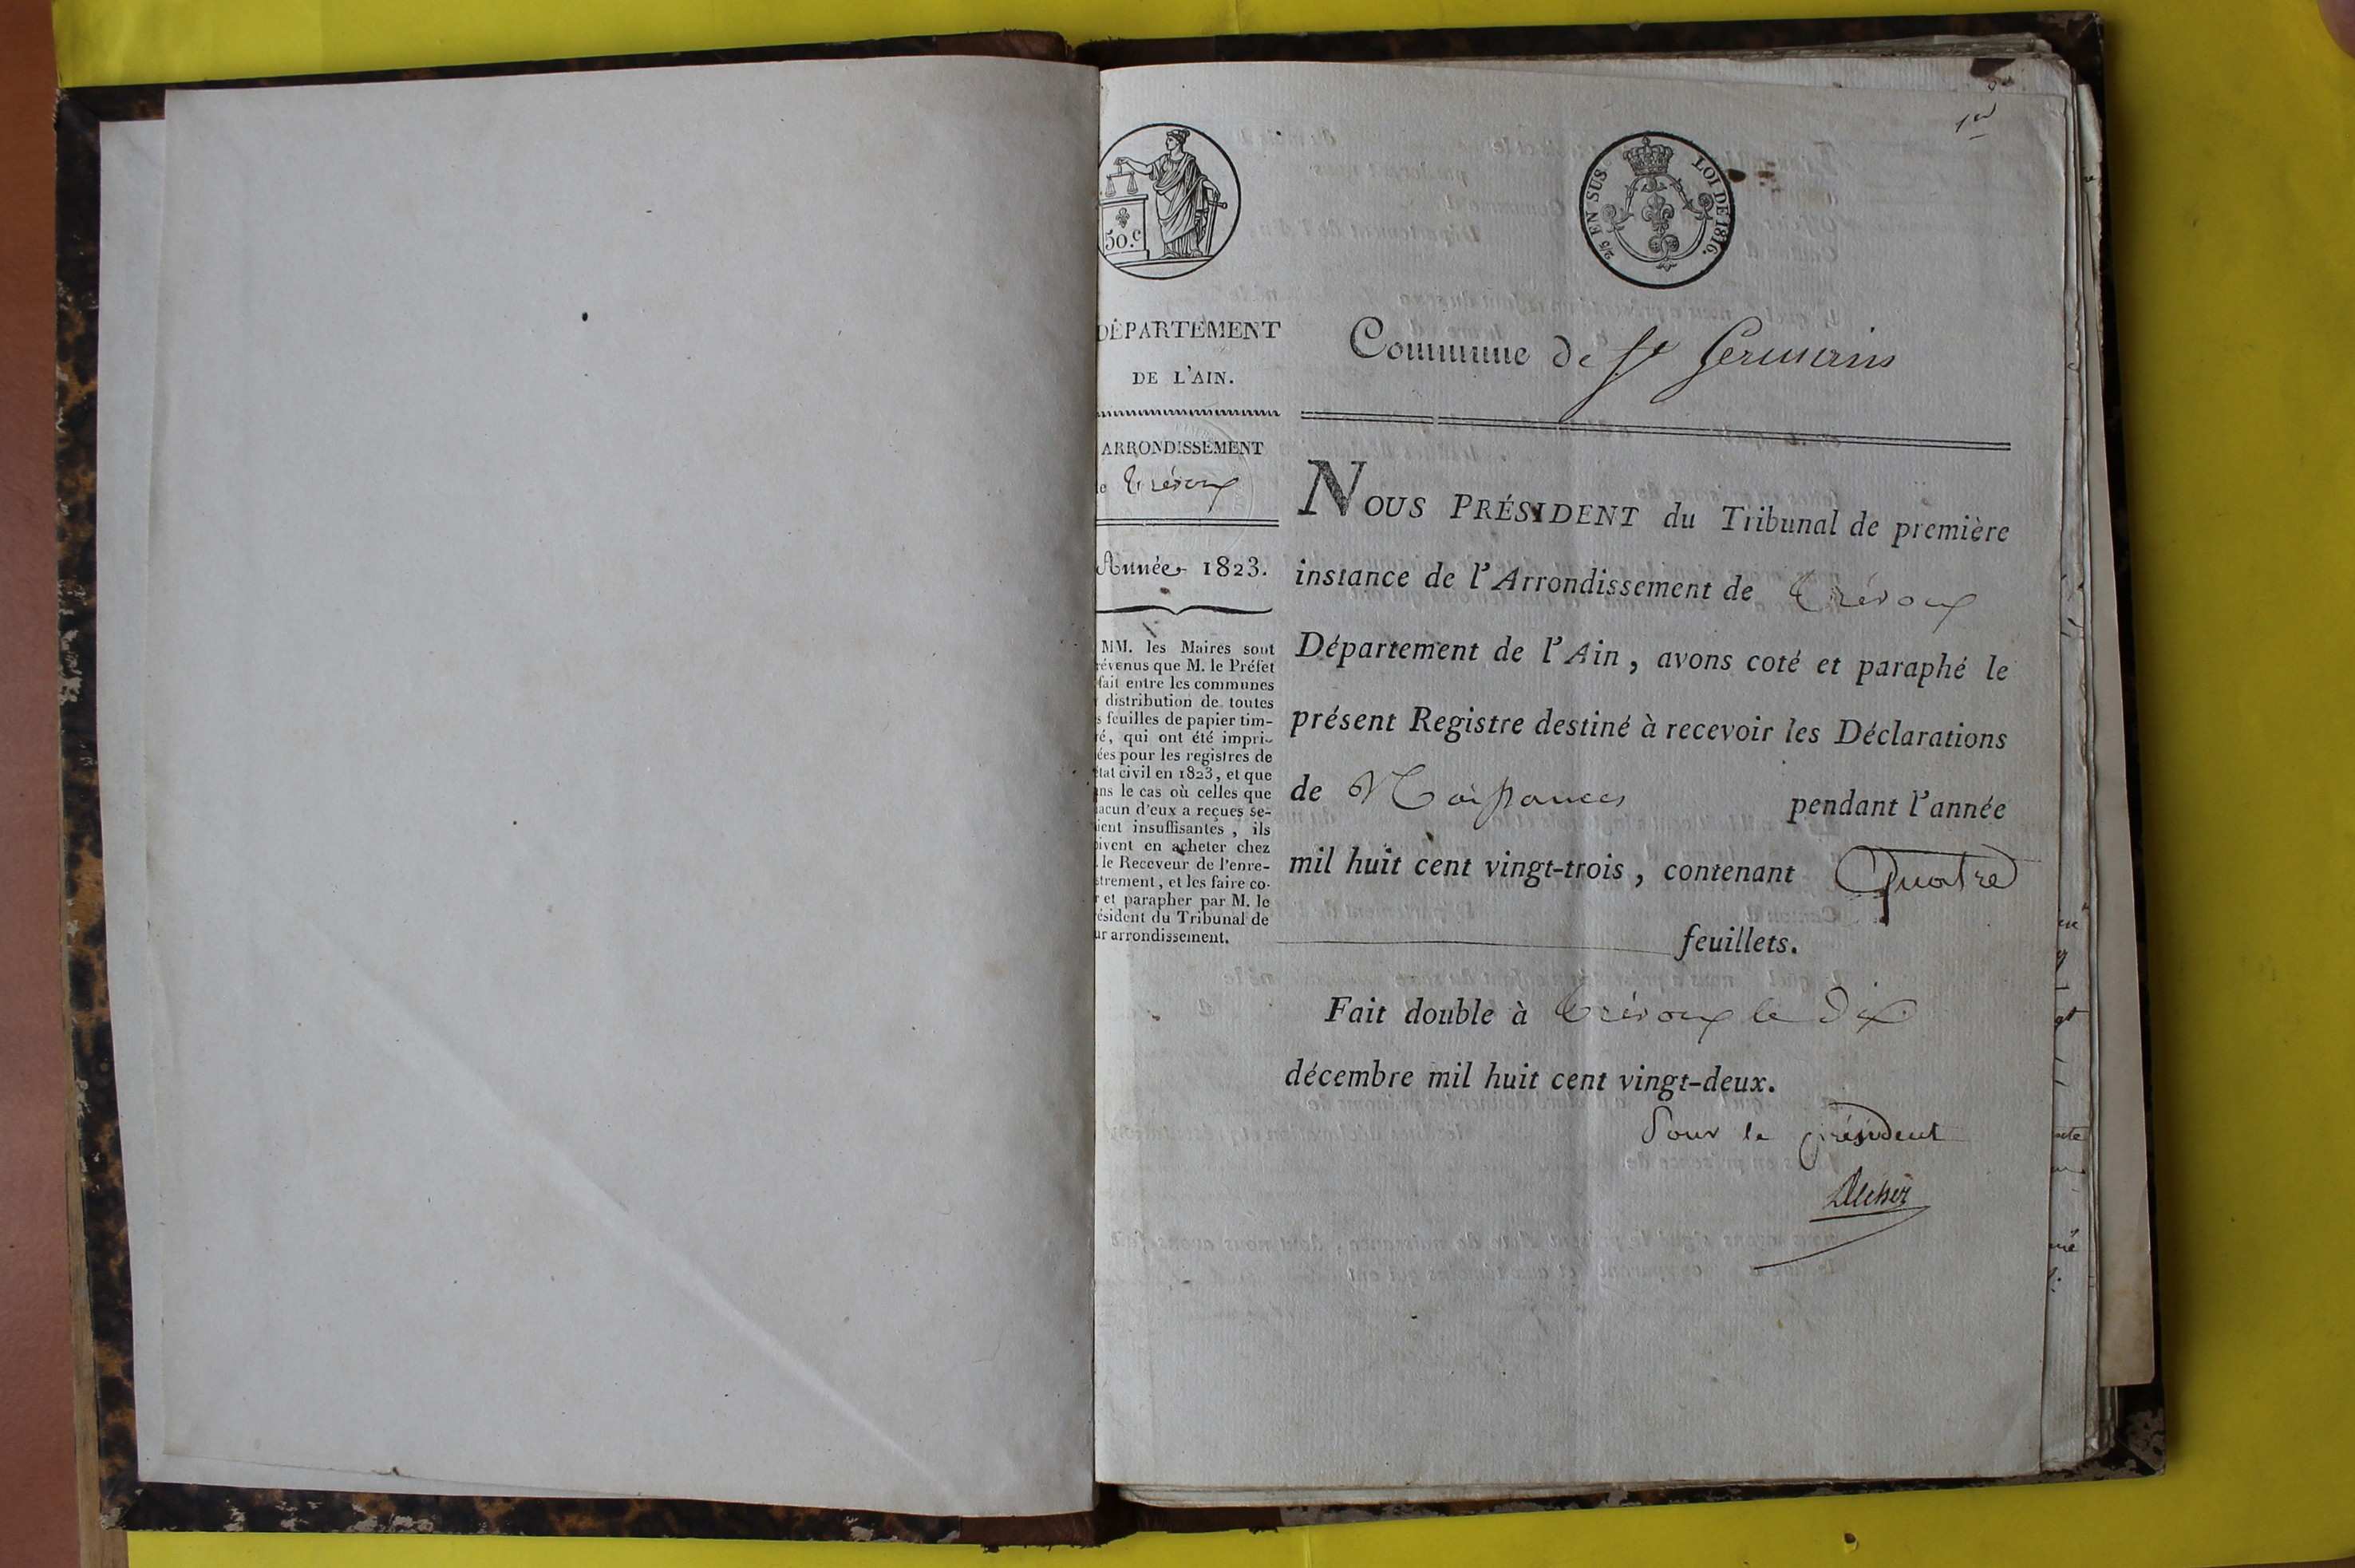 1er
50.c
2/5 EN SUS. LOI DE 1816.
DÉPARTEMENT
DE L'AIN.
ARRONDISSEMENT
de Trévoux
Année 1823.
MM. les Maires sont
révenus que M. le Préfet
fait entre les communes
distribution de toutes
s feuilles de papier tim-
ré, qui ont été impri-
ées pour les registres de
état civil en 1823, et que
ans le cas où celles que
hacun d'eux a reçues se-
aient insuffisantes, ils
oivent en acheter chez
. le Receveur de l'enre-
strement, et les faire co-
r et parapher par M. le
résident du Tribunal de
ur arrondissement.
Commune de St Germain
NOUS PRÉSIDENT du Tribunal de première
instance de l'Arrondissement de Trévoux
Département de l'Ain, avons coté et paraphé le
présent Registre destiné à recevoir les Déclarations
de Naissances pendant l'année
mil huit cent vingt-trois, contenant Quatre
feuillets.
Fait double à Trévoux le dix
décembre mil huit cent vingt-deux.
Pour le président